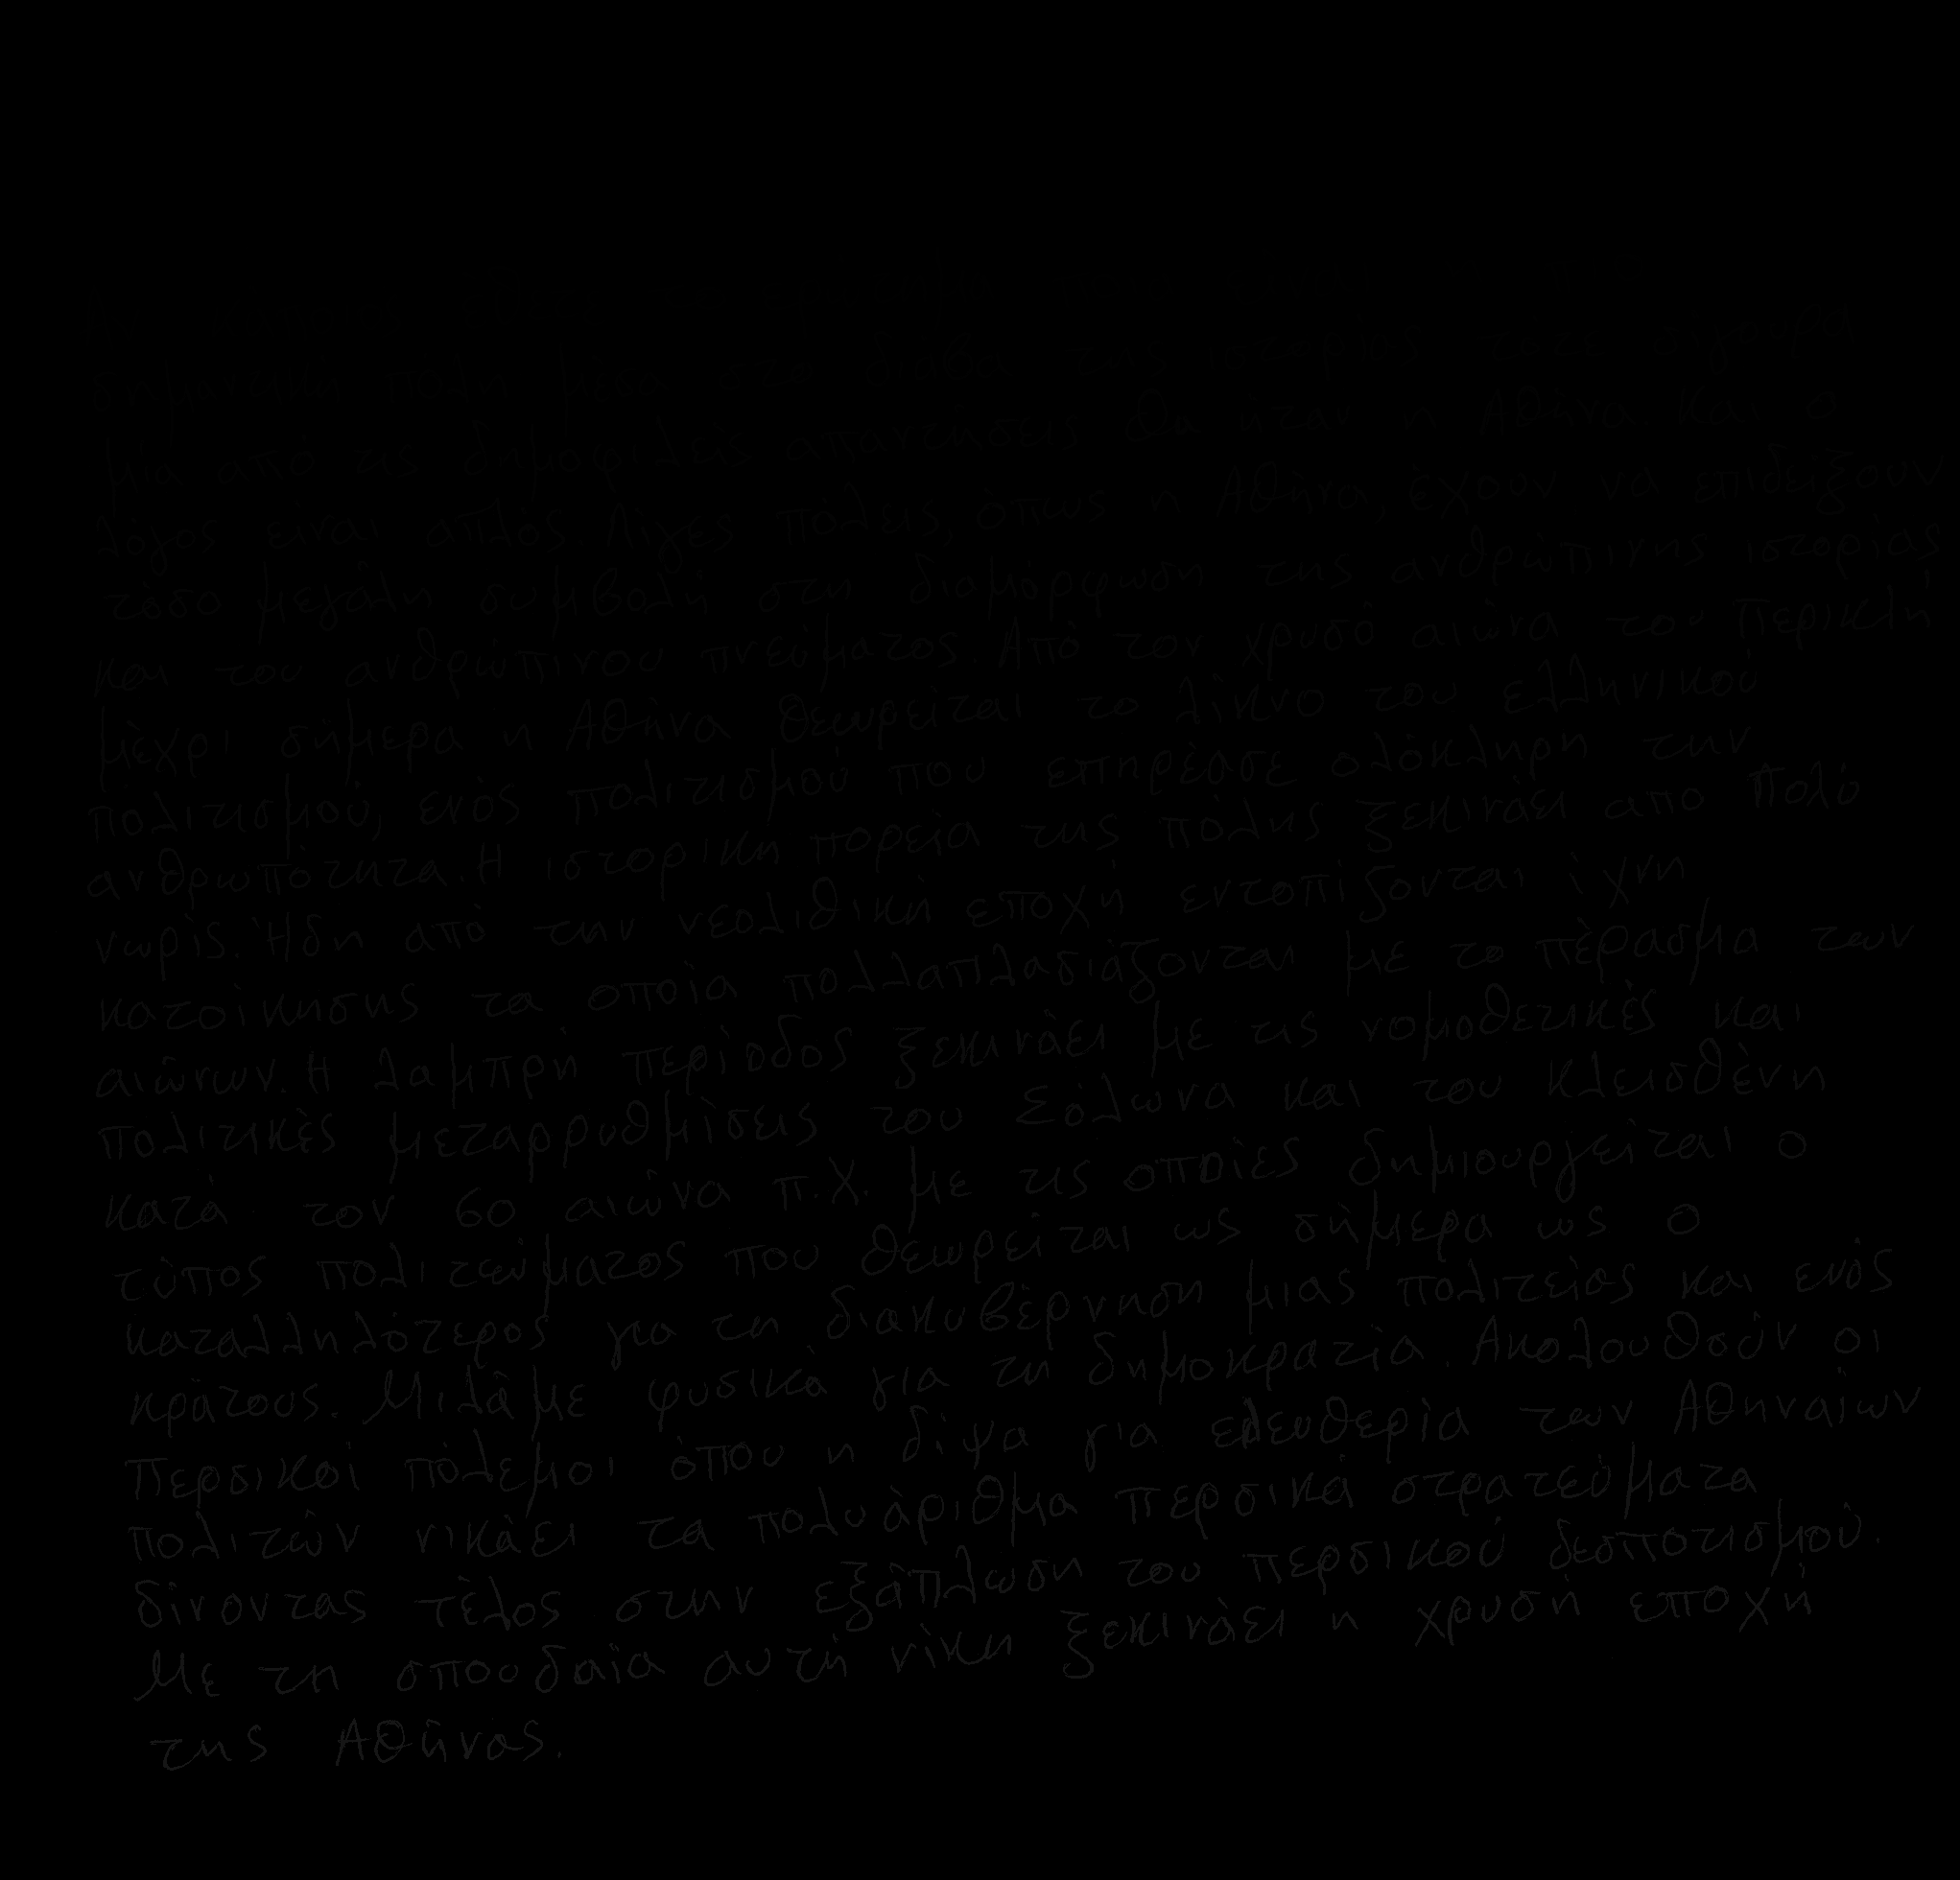 σημαντική πόλη μέσα στο διάβα της ιστορίας τότε σίγουρα
μία από τις δημοφιλείς απαντήσεις θα ήταν η Αθήνα. Και ο
λόγος είναι απλός. Λίγες πόλεις, όπως η Αθήνα, έχουν να επιδείξουν
τόσο μεγάλη συμβολή στη διαμόρφωση της ανθρώπινης ιστορίας
και του ανθρώπινου πνεύματος. Από τον χρυσό αιώνα του Περικλή
μέχρι σήμερα η Αθήνα θεωρείται το λίκνο του ελληνικού
πολιτισμού, ενός πολιτισμού που επηρέασε ολόκληρη την
ανθρωπότητα. Η ιστορικη πορεία της πόλης ξεκινάει απο πολύ
νωρίς. Ήδη από την νεολιθική εποχή εντοπίζονται ίχνη
κατοίκησης τα οποία πολλαπλασιάζονται με το πέρασμα των
αιώνων. Η λαμπρή περίοδος ξεκινάει με τις νομοθετικές και
πολιτικές μεταρρυθμίσεις του Σόλωνα και του Κλεισθένη
κατά τον 6ο αιώνα π.Χ. με τις οποίες δημιουργείται ο
τύπος πολιτεύματος που θεωρείται ως σήμερα ως ο
καταλληλότερος για τη διακυβέρνηση μιας πολιτείας και ενός
κράτους. Μιλάμε φυσικά για τη δημοκρατία. Ακολουθούν οι
Περσικοί πόλεμοι όπου η δίψα για ελευθερία των Αθηναίων
πολιτών νικάει τα πολυάριθμα περσικά στρατεύματα
δίνοντας τέλος στην εξάπλωση του περσικού δεσποτισμού.
Με τη σπουδαία αυτή νίκη ξεκινάει η χρυσή εποχή
της Αθήνας.